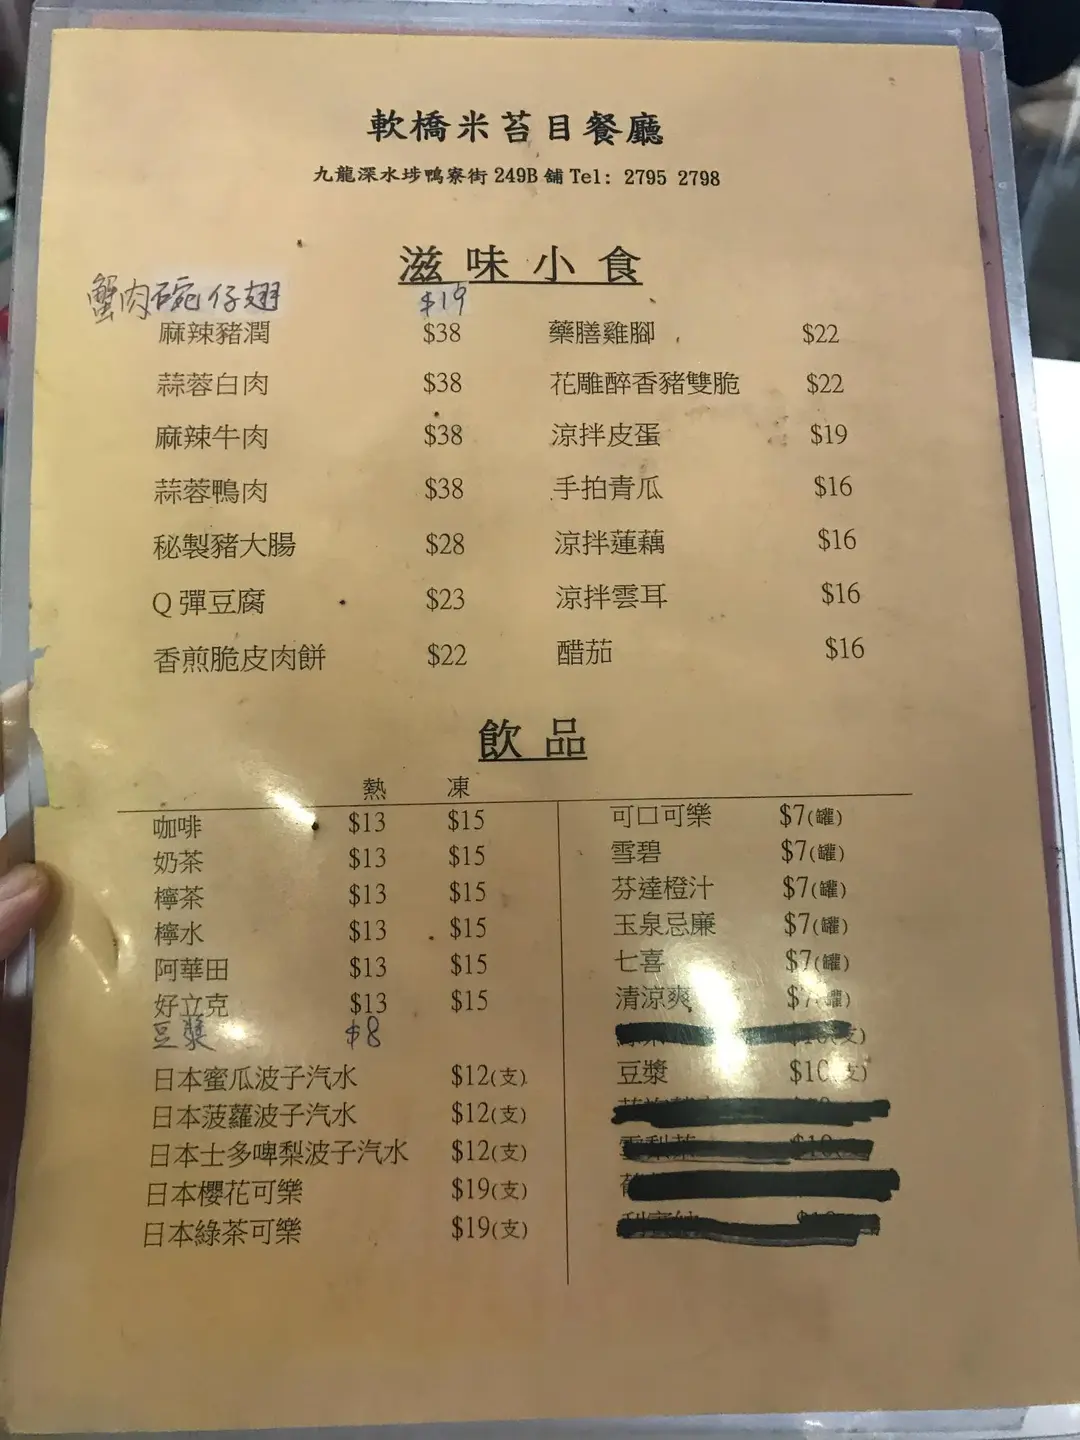 軟橋米苔目餐廳
九龍深水埗鴨寮街 249B 舖 Tel: 2795 2798
滋味小食
蟹肉碗仔翅 $19
麻辣豬潤 $38 藥膳雞腳 $22
蒜蓉白肉 $38 花雕醉香豬雙脆 $22
麻辣牛肉 $38 涼拌皮蛋 $19
蒜蓉鴨肉 $38 手拍青瓜 $16
秘製豬大腸 $28 涼拌蓮藕 $16
Q 彈豆腐 $23 涼拌雲耳 $16
香煎脆皮肉餅 $22 醋茄 $16
飲品
熱 凍
咖啡 $13 $15 可口可樂 $7(罐)
奶茶 $13 $15 雪碧 $7(罐)
檸茶 $13 $15 芬達橙汁 $7(罐)
檸水 $13 $15 玉泉忌廉 $7(罐)
阿華田 $13 $15 七喜 $7(罐)
好立克 $13 $15 清涼爽 $7(罐)
豆漿 $8
日本蜜瓜波子汽水 $12(支) 豆漿 $10(支)
日本菠蘿波子汽水 $12(支)
日本士多啤梨波子汽水 $12(支)
日本櫻花可樂 $19(支)
日本綠茶可樂 $19(支)